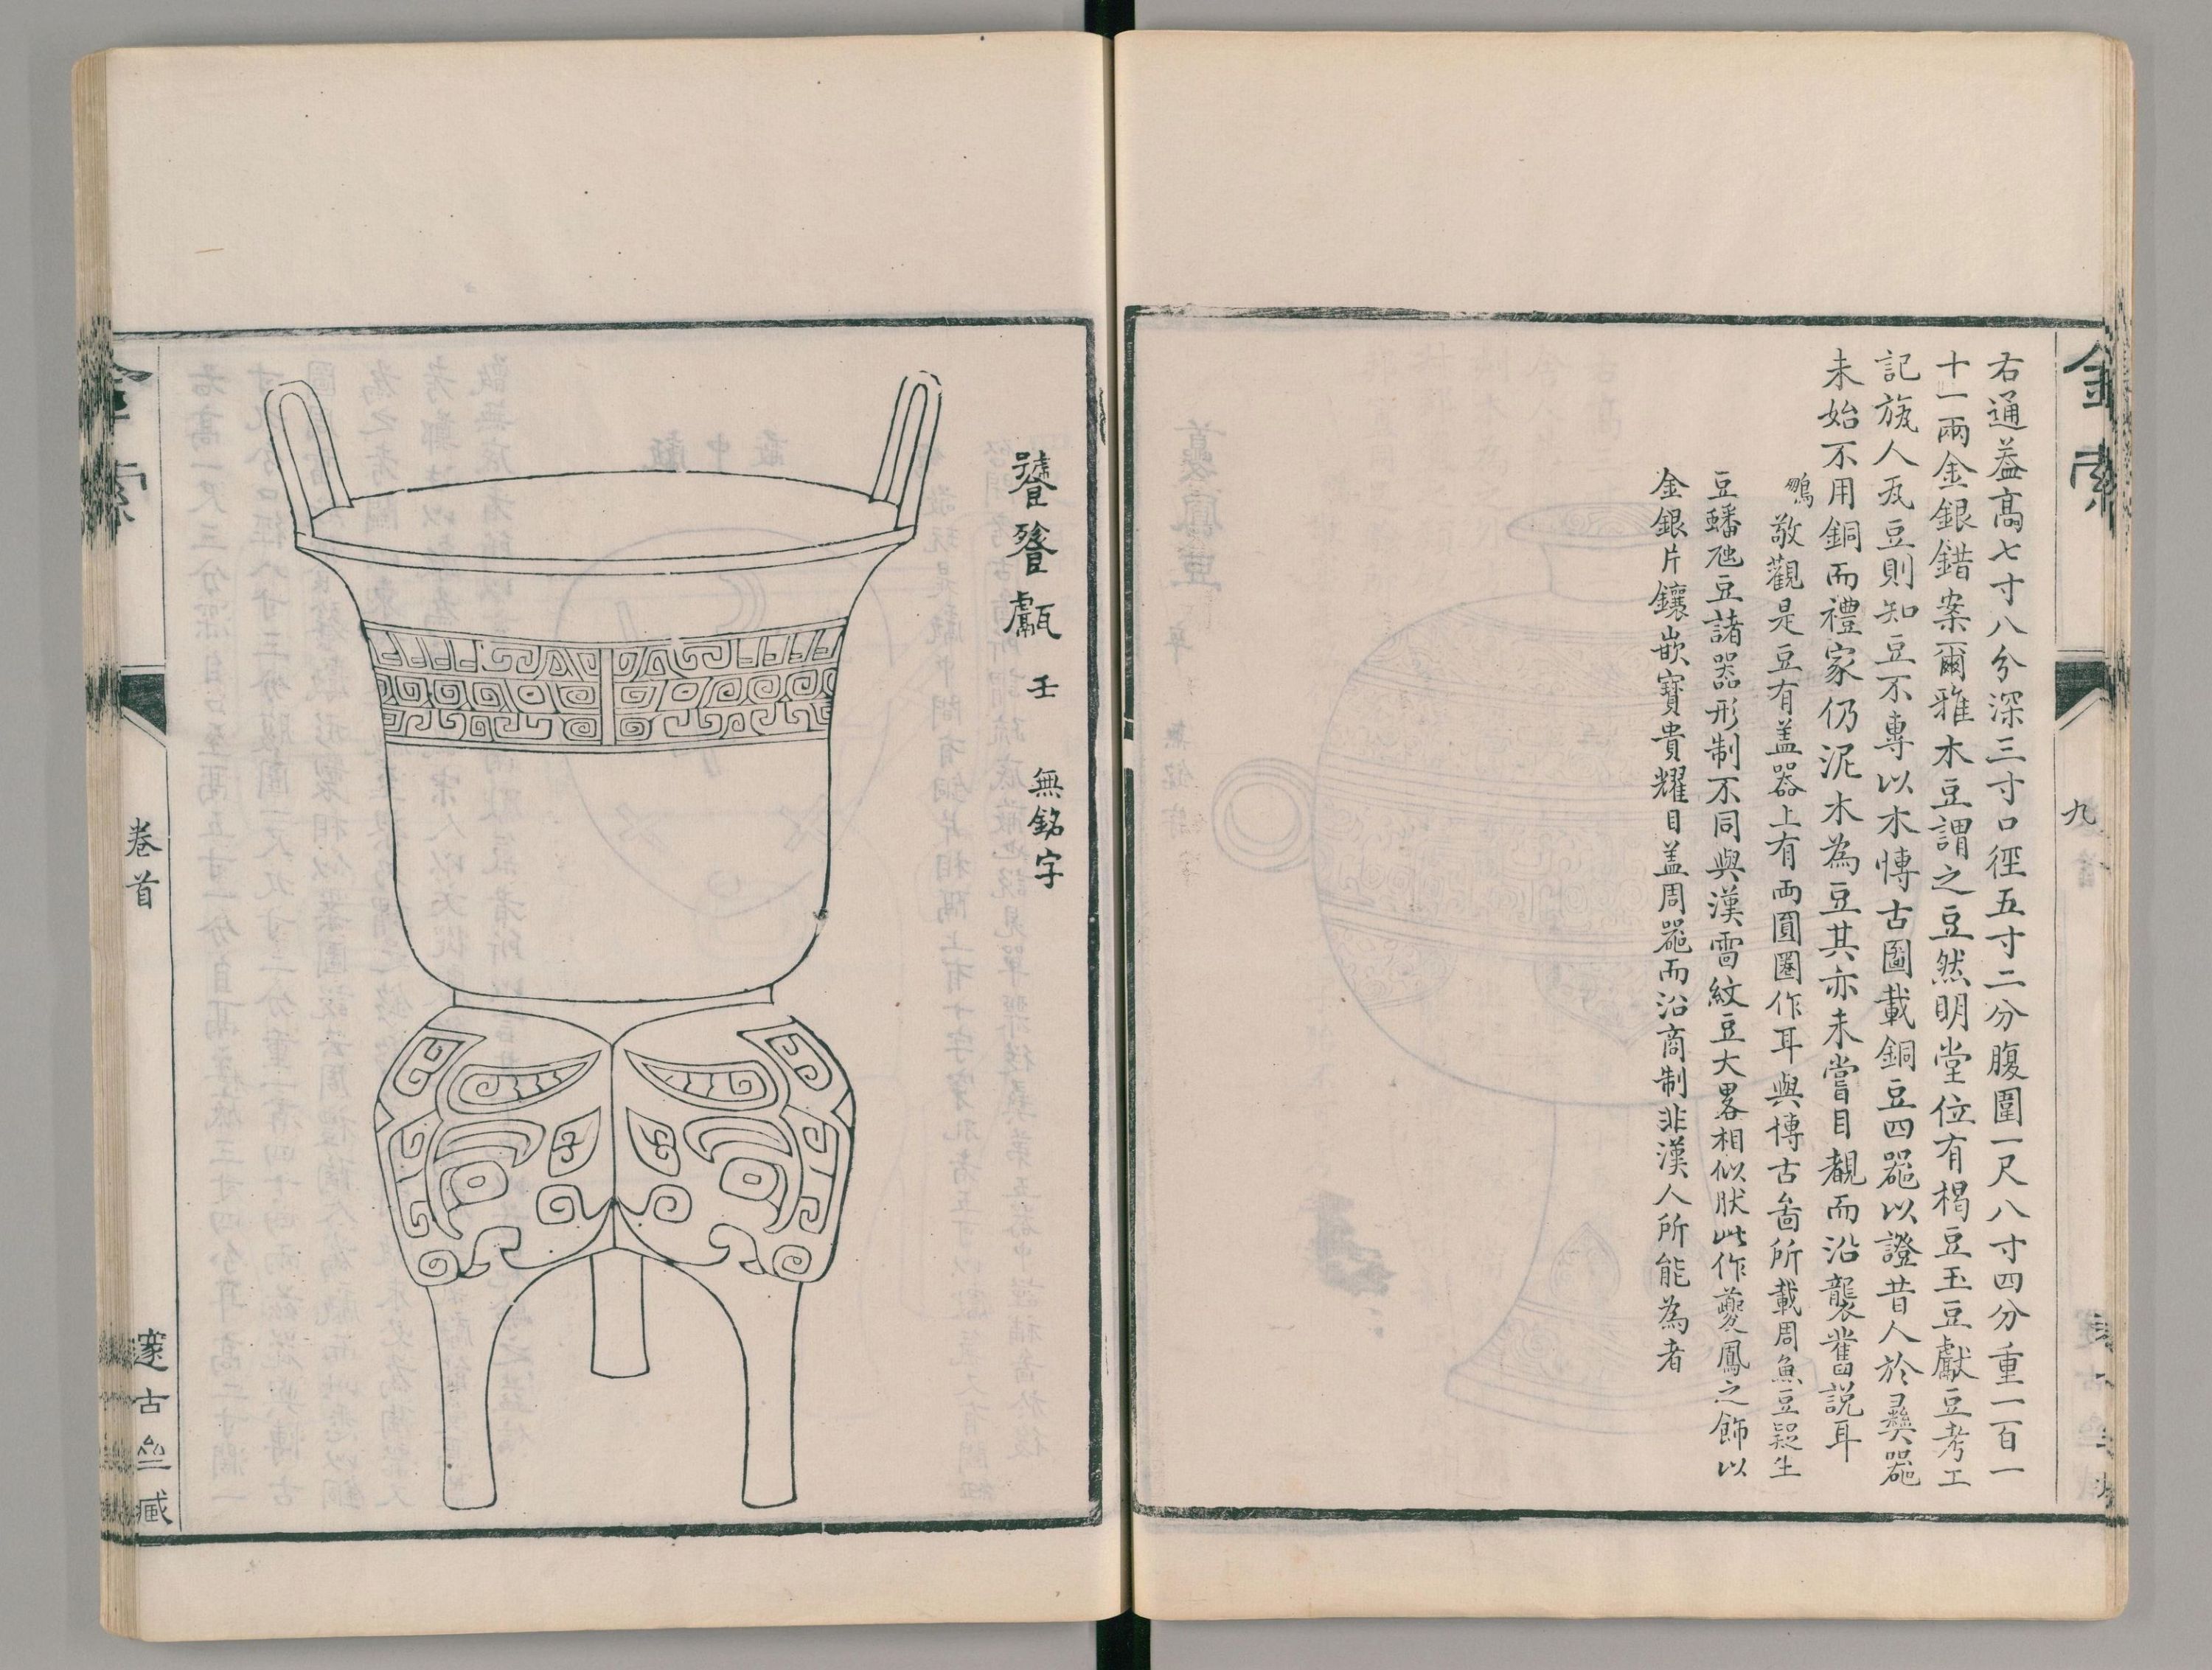 金索
九
右通蓋高七寸八分深三寸口徑五寸二分腹圍一尺八寸四分重一百一
十一兩金銀錯案爾雅木豆謂之豆然明堂位有楬豆玉豆獻豆考工
記旊人為豆則知豆不專以木博古圖載銅豆四器以證昔人於彞器
未始不用銅而禮家仍泥木為豆其亦未嘗目覩而沿襲舊説耳
鵬敬觀是豆有盖器上有兩圓圈作耳與博古啚所載周魚豆疑生
豆蟠虺豆諸器形制不同與漢雷紋豆大畧相似肰此作夔鳳之飾以
金銀片鑲嵌寶貴耀目盖周器而沿商制非漢人所能為者
饕餮甗 壬 無銘字
金索
卷首
邃古 臧